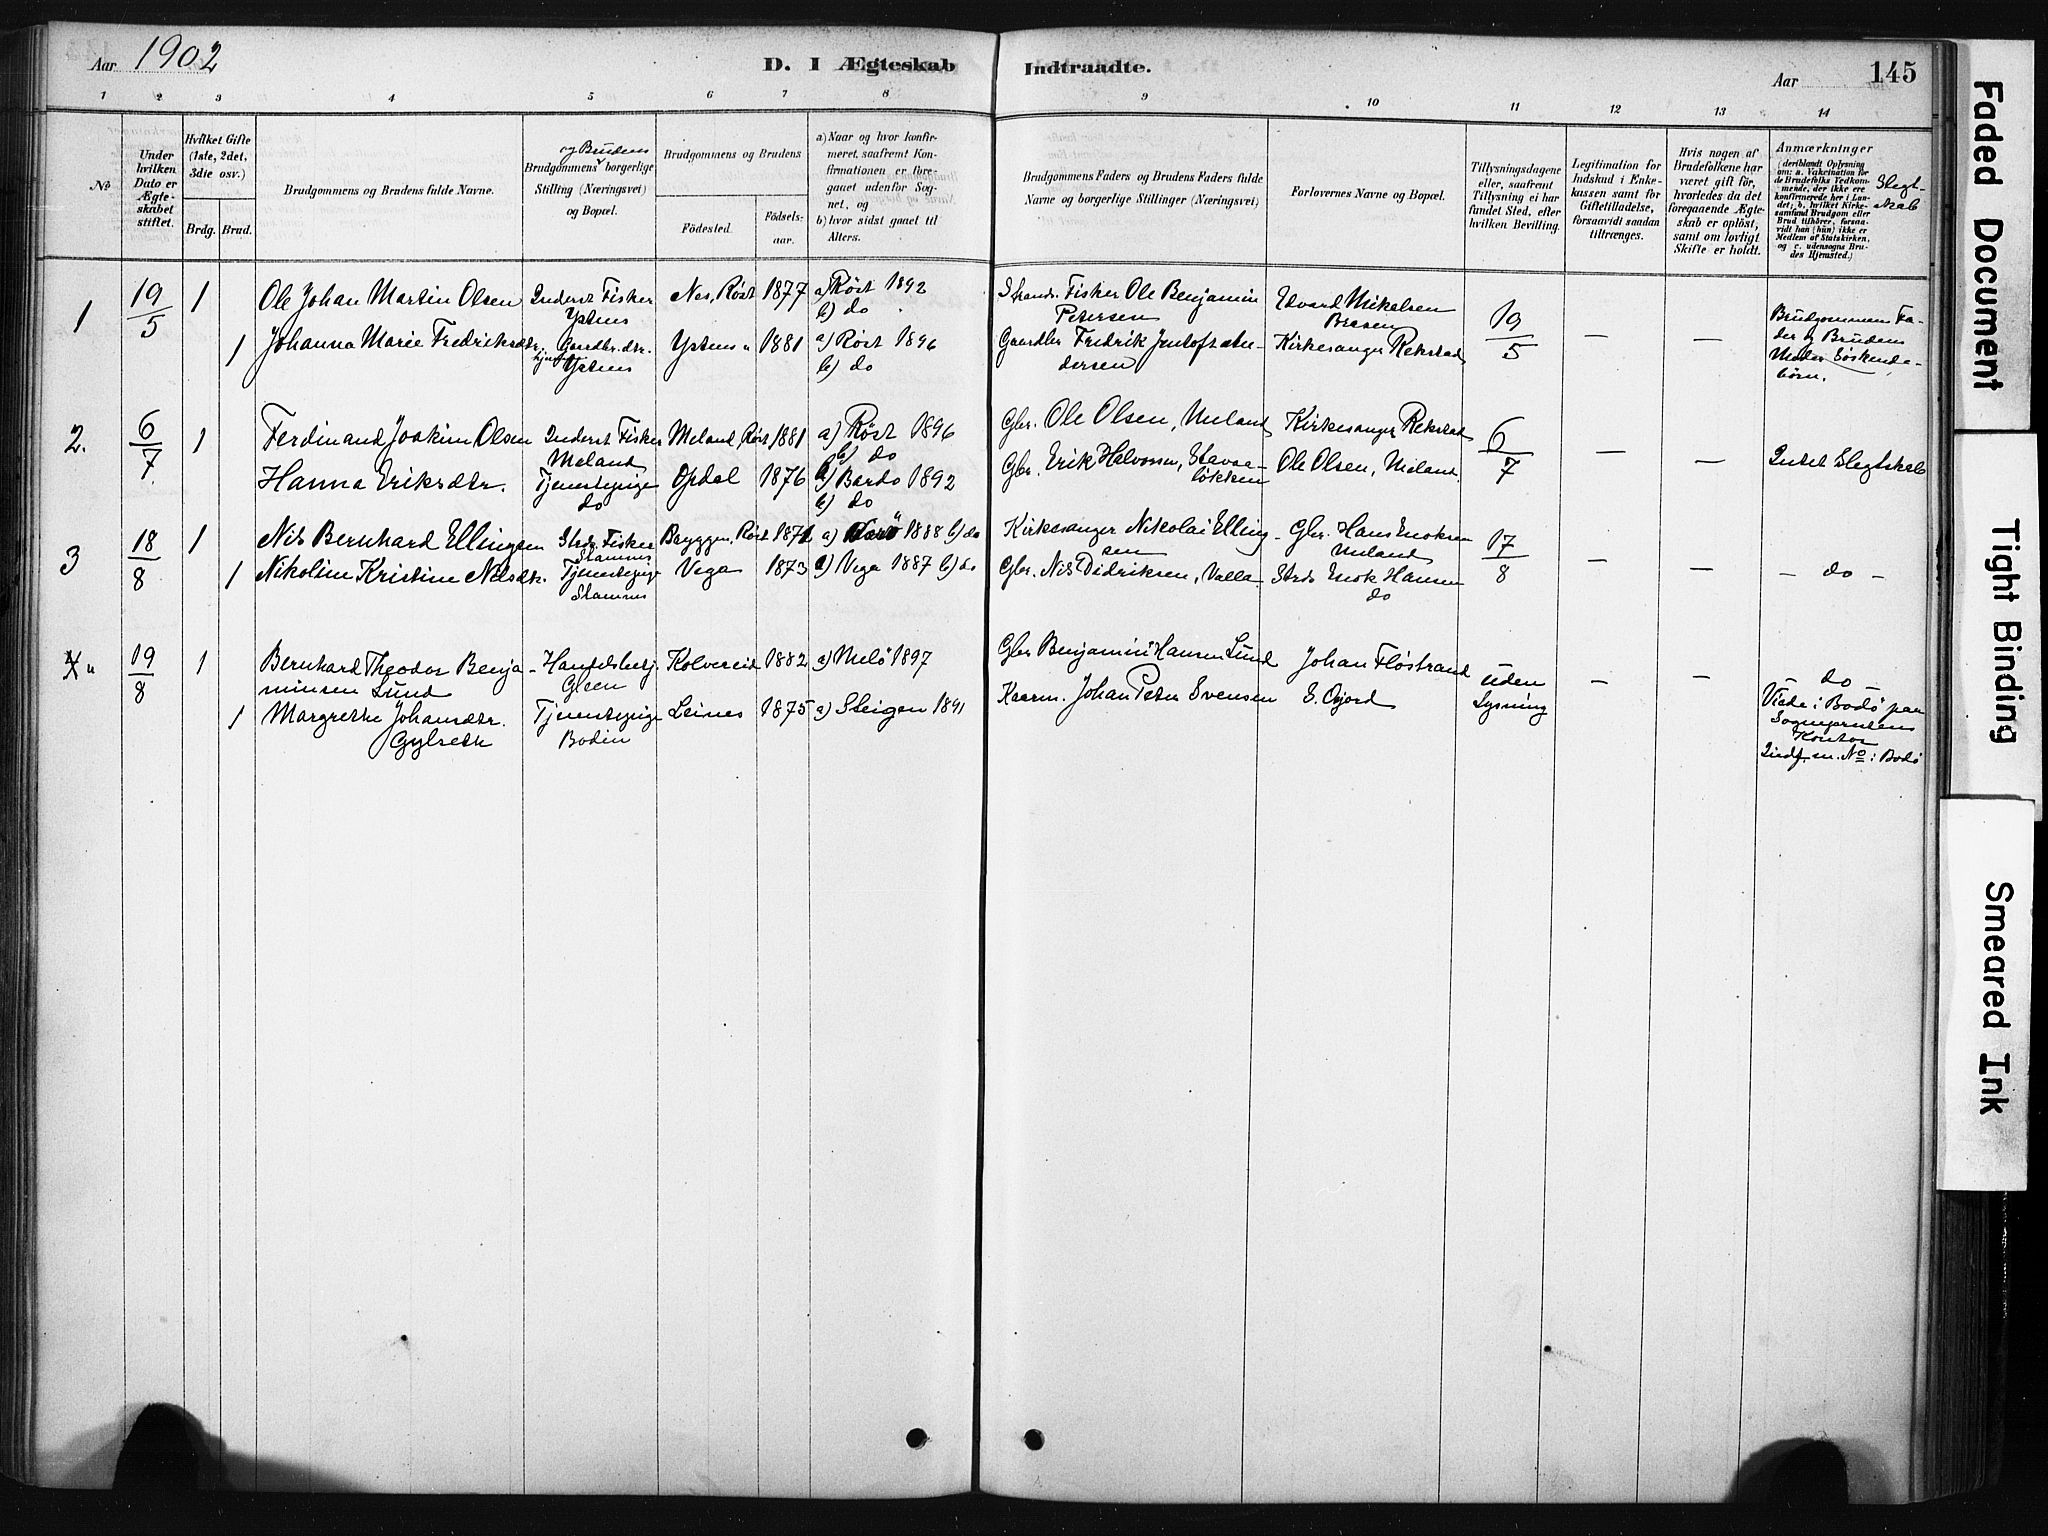 Aar 1902
D. I Ægteskab Indtraadte.
Aar 145
1 2 3 4 5 6 7 8 9 10 11 12 13 14
No
Under hvilken Dato er Ægteskabet stiftet.
Hvilket Gifte (1ste, 2det, 3die osv.)
Brdg. Brud.
Brudgommens og Brudens fulde Navne.
og Brudens
Brudgommens borgerlige Stilling (Næringsvei) og Bopæl.
Brudgommens og Brudens
Fødested.
Fødselsaar.
a) Naar og hvor konfirmeret, saafremt Konfirmationen er foregaaet udenfor Sognet, og
b) hvor sidst gaaet til Alters.
Brudgommens Faders og Brudens Faders fulde Navne og borgerlige Stillinger (Næringsvei)
Forlovernes Navne og Bopæl.
Tillysningsdagene eller, saafremt Tillysning ei har fundet Sted, efter hvilken Bevilling.
Legitimation for Indskud i Enkekassen samt for Giftetilladelse, forsaavidt saadan tiltrænges.
Hvis nogen af Brudefolkene har været gift før, hvorledes da det foregaaende Ægteskab er opløst, samt om lovligt Skifte er holdt.
Anmærkninger
(deriblandt Oplysning om: a. Vakcination for de Brudefolks Vedkommende, der ikke ere konfirmerede her i Landet; b. hvilket Kirkesamfund Brudgom eller Brud tilhører, forsaavidt han (hun) ikke er Medlem af Statskirken, og c. udensogns Brudes Hjemsted.)
Slegtskab
1 19/5 1 Ole Johan Martin Olsen Inderst Fisker Ystnes Nes, Røst 1877 a) Røst 1892 b) do
Strands. Fisker Ole Benjamin Petersen Edvard Mikelsen 19/5 — —
1 Johanna Marie Fredriksdtr. Gaardbr. dtr. Ystnes Ystnes 1881 a) Røst 1896 b) do
Gaardbr Fredrik Jentoft Andersen Kirkesanger Rekstad
Brudgommens Fader og Brudens Moder Søskendebørn.
2. 6/7 1 Ferdinand Joakim Olsen Inderst Fisker Meland Meland, Røst 1881 a) Røst 1896 b) do
Gbr. Ole Olsen, Meland Kirkesanger Rekstad 6/7 — — Intet Slegtskab
Hanna Eriksdtr. Tjenestepige do Opdal 1876 a) Bardo 1892 b) do
Gbr. Erik Halvorsen, Ole Olsen, Meland.
3 18/8 1 Nils Bernhard Ellingsen Strds. Fisker Stamnes Bryggen, Røst 1872 a) 1888 b) do
Kirkesanger Nikolai Ellingsen Gbr. Hans Enoksen Meland 17/8 — — — do —
1 Nikoline Kristine Nilsdtr. Tjenestepige Stamnes Vega 1873 a) Vega 1887 b) do
Gbr. Nils Didriksen, Valla Strds Enok Hansen do
4 19/8 1 Bernhard Theodor Benjaminsen Lund Handelsbetj. Kolvereid 1882 a) Melö 1897
Gbr Benjamin Hansen Lund Johan Fløstrand uden Lysning — — do
1 Margrethe Johansdtr. Gylseth Tjenestepige Bodin Leines 1875 a) Steigen 1891
Johan Peter Svensen
Viede i Bodö paa Sogneprestens Kontor
Indf. m. No i Bodö
Faded Document
Tight Binding
Smeared Ink